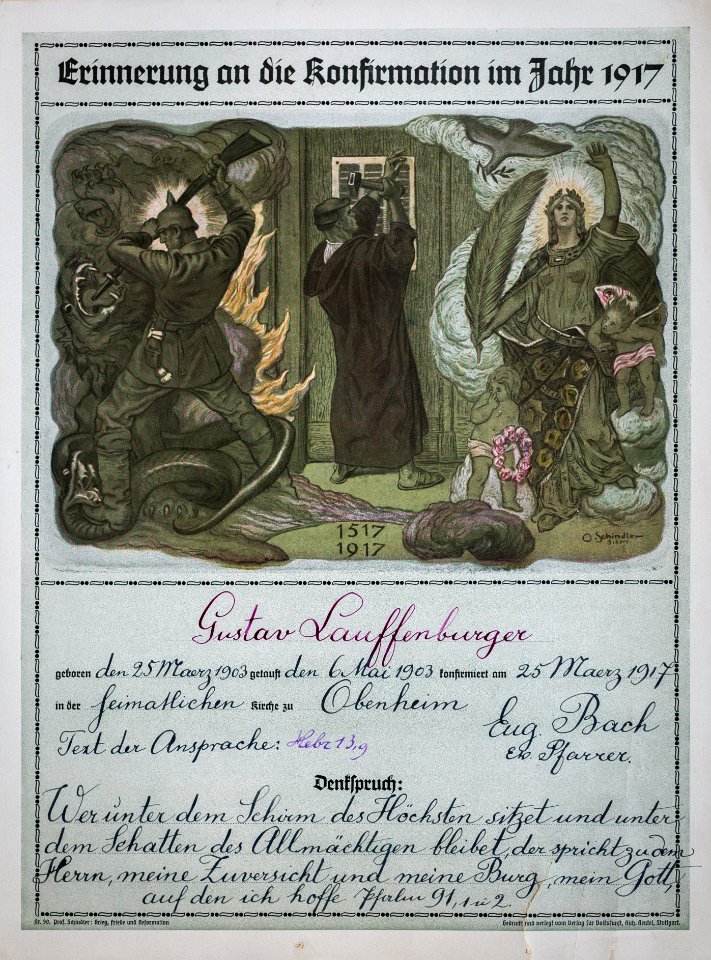 Erinnerung an die Konfirmation im Jahr 1917
1517
1917
O Schindler
Gustav Lauffenburger
geboren den 25 Maerz 1903 getauft den 6 Mai 1903 konfirmiert am 25 Maerz 1917
in der heimatlichen Kirche zu Obenheim
Eug. Bach
Ev. Pfarrer.
Text der Ansprache: Hebr 13,9
Denkspruch:
Wer unter dem Schirm des Höchsten sitzet und unter
dem Schatten des Allmächtigen bleibet, der spricht zu dem
Herrn, meine Zuversicht und meine Burg, mein Gott,
auf den ich hoffe Psalm 91, 1 u 2.
Nr. 90. Prof. Schindler: Krieg, Friede und Reformation
Gedruckt und verlegt vom Verlag für Volkskunst, Rich. Keutel, Stuttgart.